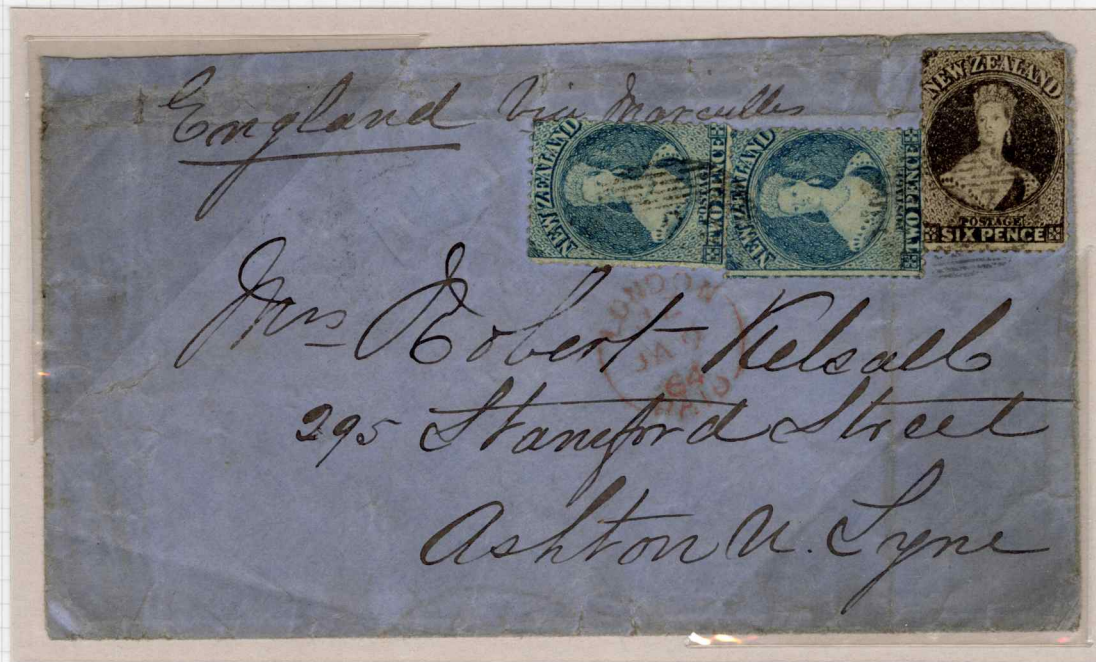 England Via Marseilles
NEW ZEALAND
POSTAGE
TWO PENCE
NEW ZEALAND
POSTAGE
TWO PENCE
NEW ZEALAND
POSTAGE
SIX PENCE
LONDON
JA
64
PAID
Mrs Robert Kelsall
295 Stamford Street
Ashton U. Lyne